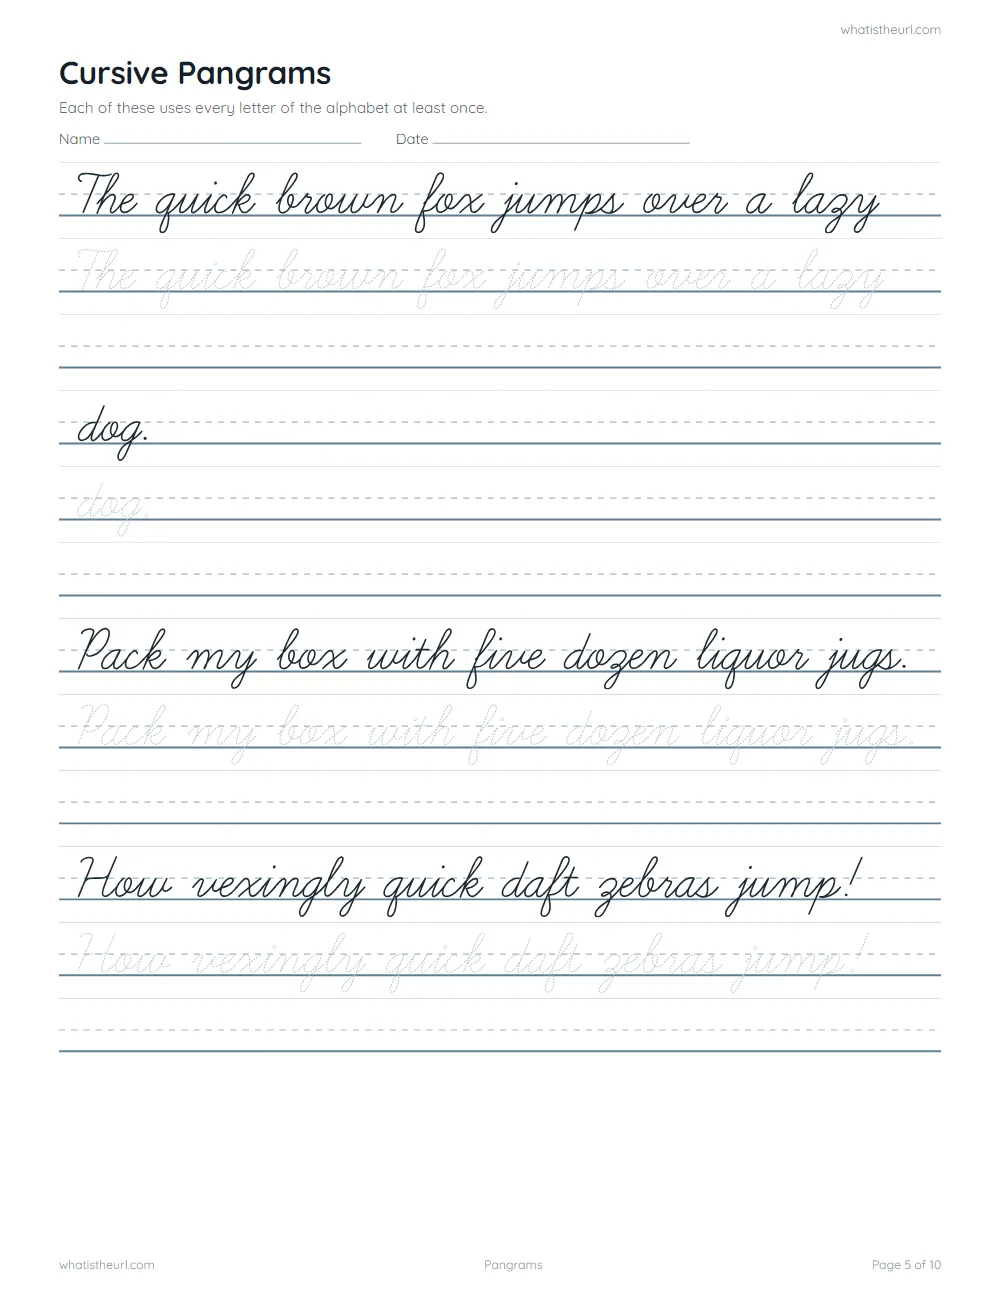 whatistheurl.com
Cursive Pangrams
Each of these uses every letter of the alphabet at least once.
Name Date
The quick brown fox jumps over a lazy
The quick brown fox jumps over a lazy
dog.
dog.
Pack my box with five dozen liquor jugs.
Pack my box with five dozen liquor jugs.
How vexingly quick daft zebras jump!
How vexingly quick daft zebras jump!
whatistheurl.com Pangrams Page 5 of 10